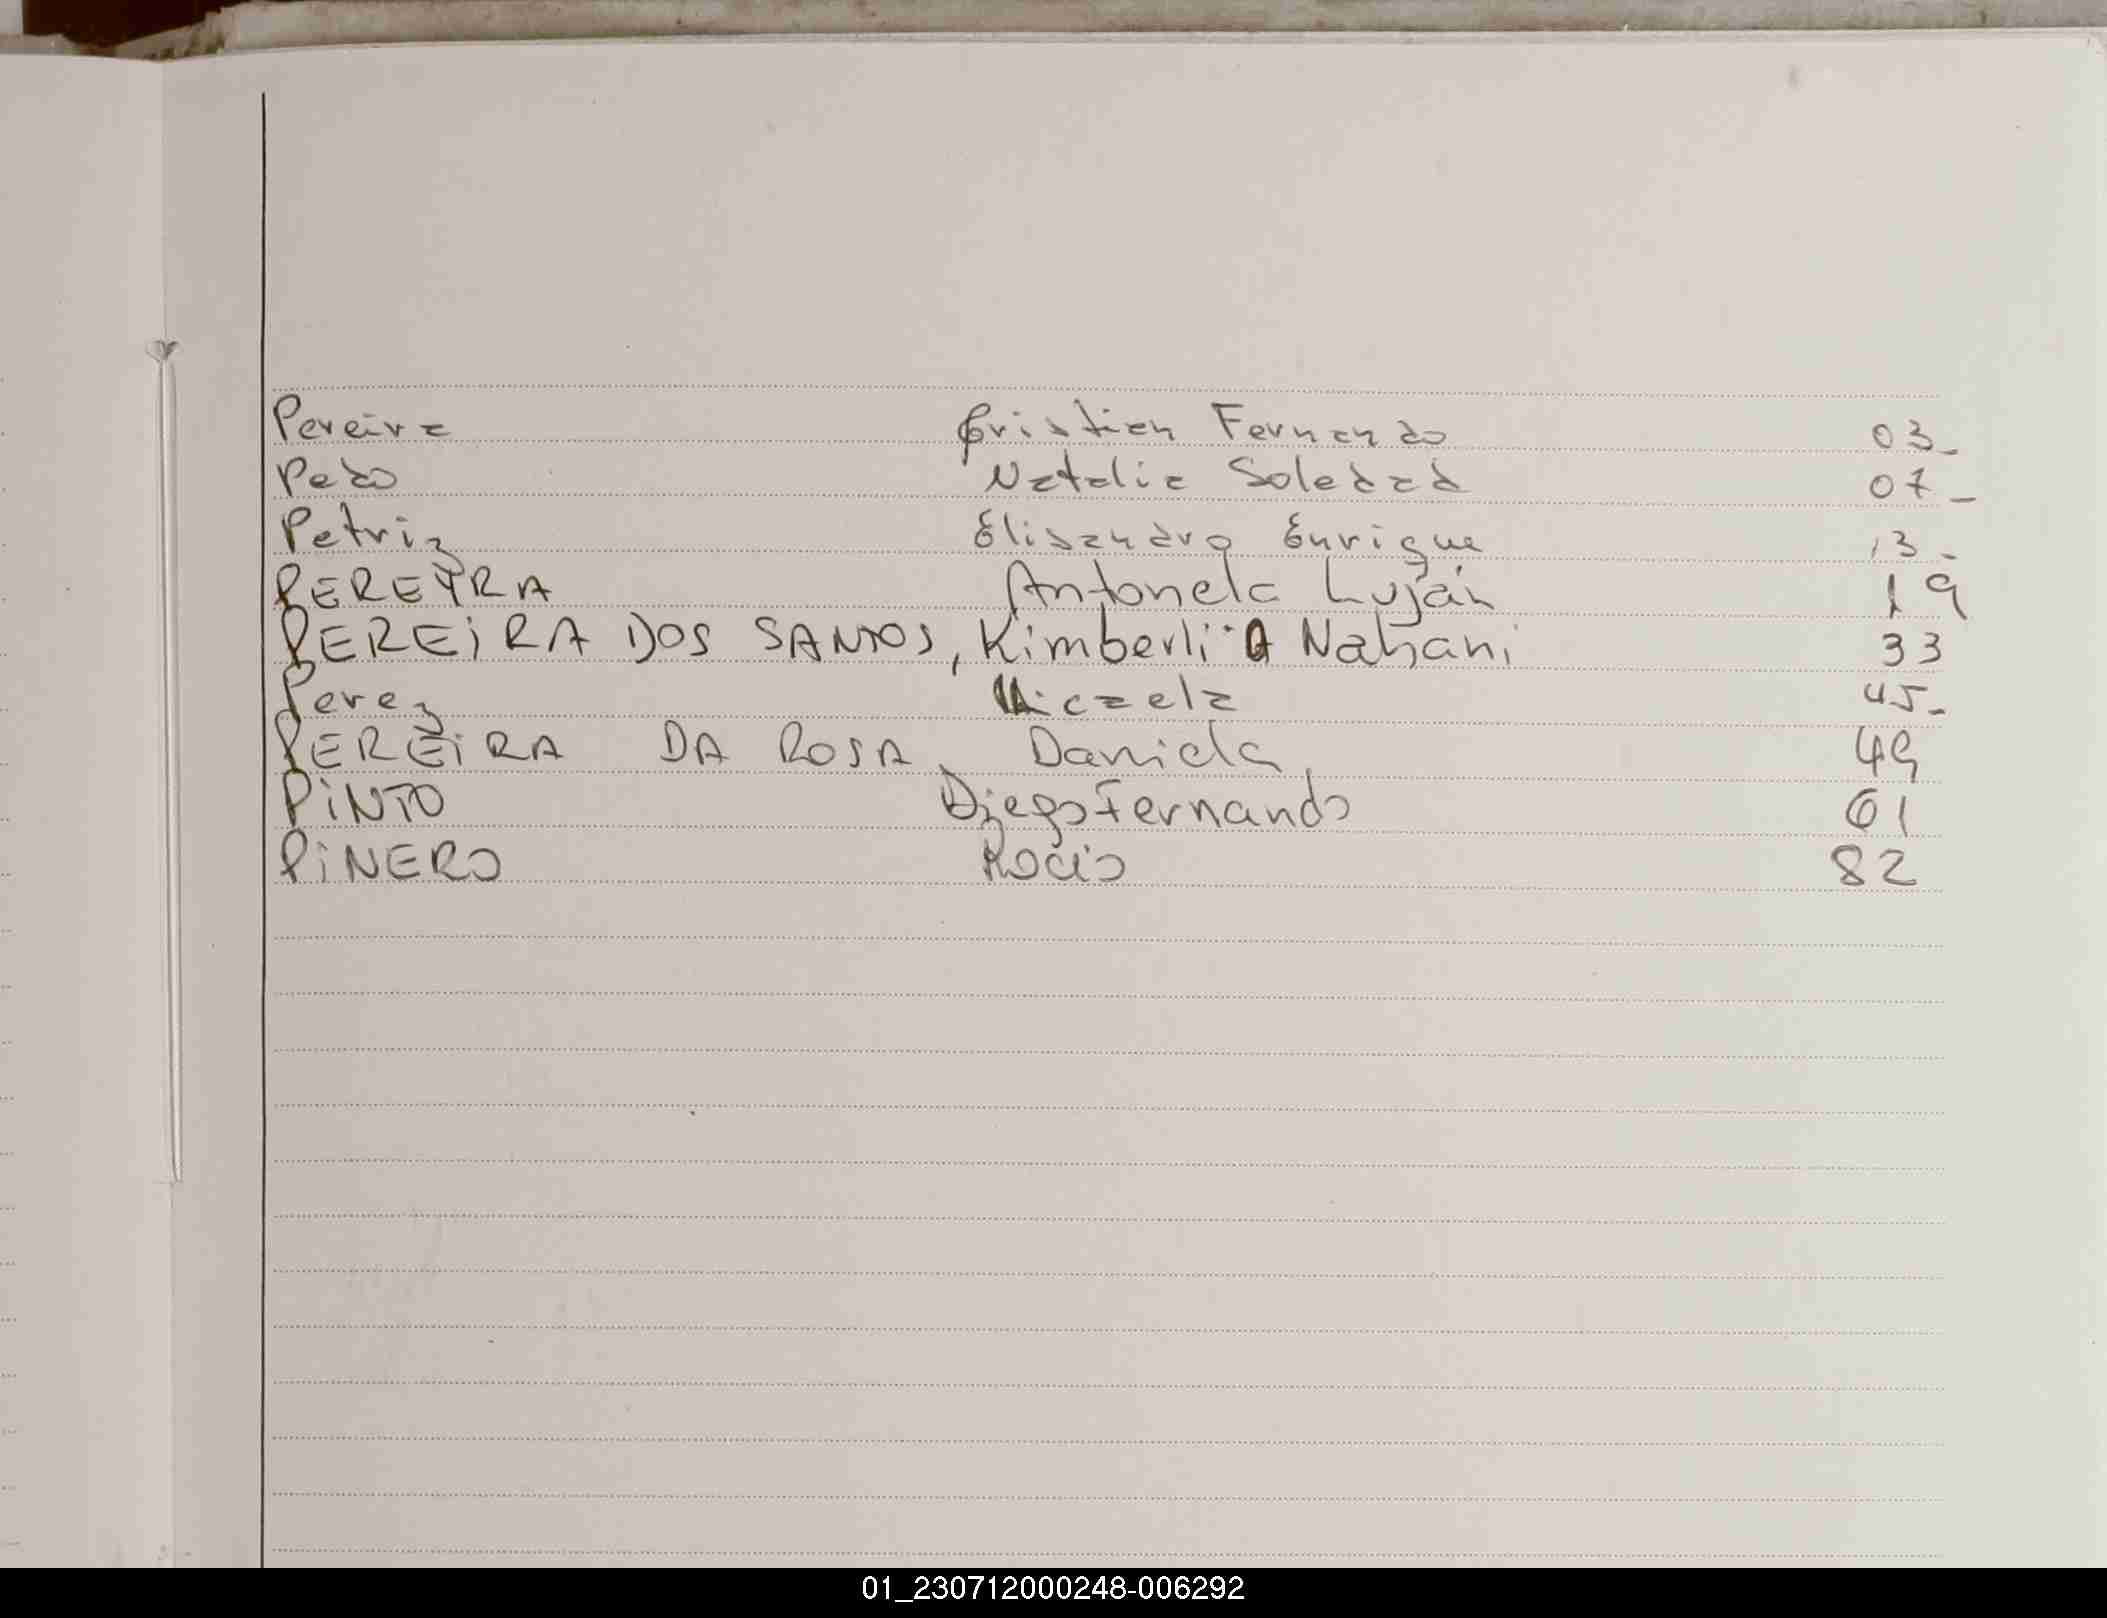 Pereira Cristian Fernando 03_
Pedo Natalia Soledad 07_
Petriz Elisandro Enrique 13_
PEREYRA Antonela Luján 19
PEREiRA DOS SANTOS, Kimberli Nahani 33
Perez Micaela 45_
PEREiRA DA ROSA, Daniela, 49
PiNTO Diego Fernando 61
PiNERO Rocío 82
01_230712000248-006292